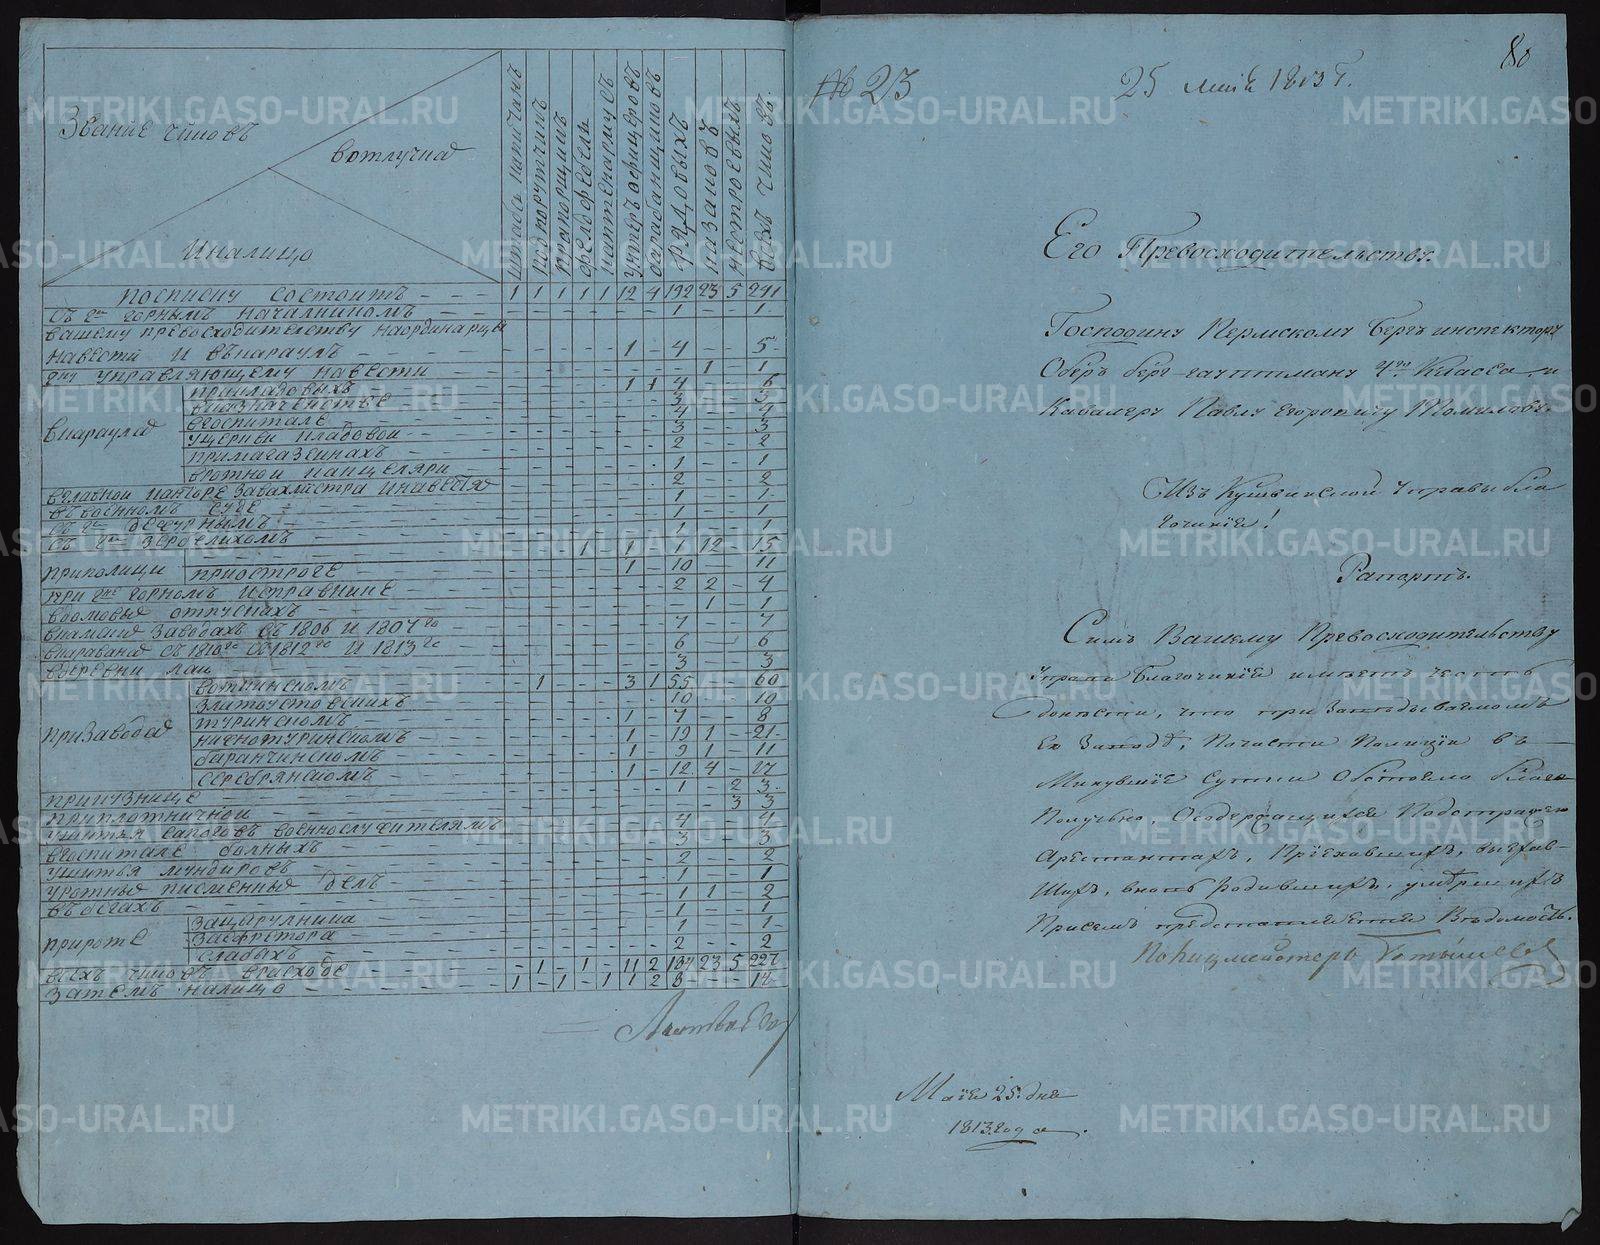 Званiе чиновъ
вотлучке
Иналицо
подпорутчикъ
прапорщикъ
фелдфебель
Унтеръ офицеровъ
барабанщиковъ
рядовыхъ
казаковъ
нестроевыхъ
всехъ чиновъ
посписку состоитъ - - - 1 1 1 1 1 12 4 192 23 5 241
съ гмъ горнымъ началникомъ 1 - 1
вашему превосходителству наординарцы
навести и вкараулъ 1 - 4 5
гну управляющему навести 1 - 1
вкарауле
прикладовыхъ 1 1 4 6
вказначействе 3 3
вгоспитале 4 4
уцеркви кладовои 3 3
примагазеинахъ 2 2
вротнои канцеляри 1 1
вглавнои канторе Завахмистра инавестяхъ 2 2
въвоенномъ суде 1 1
съ гмъ дежурнымъ 1 1
1 1
приполици 1 - 1 - 1 12 - 15
приостроге 1 - 10 11
при гне горномъ исправнике 2 2 - 4
вдомовые отпускахъ 1 1
вкамские Заводахъ съ 1806 и 1807 го 7 - 7
вкараване съ 1810 го 1812 го и 1813 го 6 6
вдеревни лаи 3 3
призаводе
воткинскомъ 1 3 1 55 60
Златоустовскихъ 10 10
туринскомъ 1 - 7 8
нижнотуринскомъ 1 - 19 1 - 21
баранчинскомъ 1 - 9 1 - 11
серебрянскомъ 1 12 4 - 17
прикузнице 1 - 2 3
приплотничнои 3 3
ушитья сапоговъ военнослужителямъ 4 4
вгоспитале болныхъ 3 3
ушитья мундировъ 2 2
уротные писменные делъ 1 1
въбегахъ 1 1 - 2
прироте
1 1
1 1
слабыхъ 2 2
всехъ чиновъ врасходе - 1 - 1 - 11 2 184 23 5 227
Затемъ налицо 1 - 1 - 1 1 2 8 - - 14
№ 23
25 маiя 1813 г.
80
Его Превосходительству.
Господину Пермскому Бергъ инспектору
Оберъ берг гауптману 4го Класса и
Кавалеру Павлу Егоровичу Томилову.
Изъ Кушвинской Управы бла
гочинiя!
Рапортъ.
Симъ Вашему Превосходительству
Управа Благочинiя имеетъ честь
донести, что при Заведываемомъ
Ея Заводе, Почасти Полицiи въ
Минувшiе сутки Обстояло благо
Получно, Осодержащихся Подстражею
Арестантахъ, Прiехавшихъ, выехав-
шихъ, вновь родившихъ, умершихъ
Присемъ представляется Ведомость.
Полицмейстеръ
Маiя 25. дня
1813 года.
METRIKI.GASO-URAL.RU